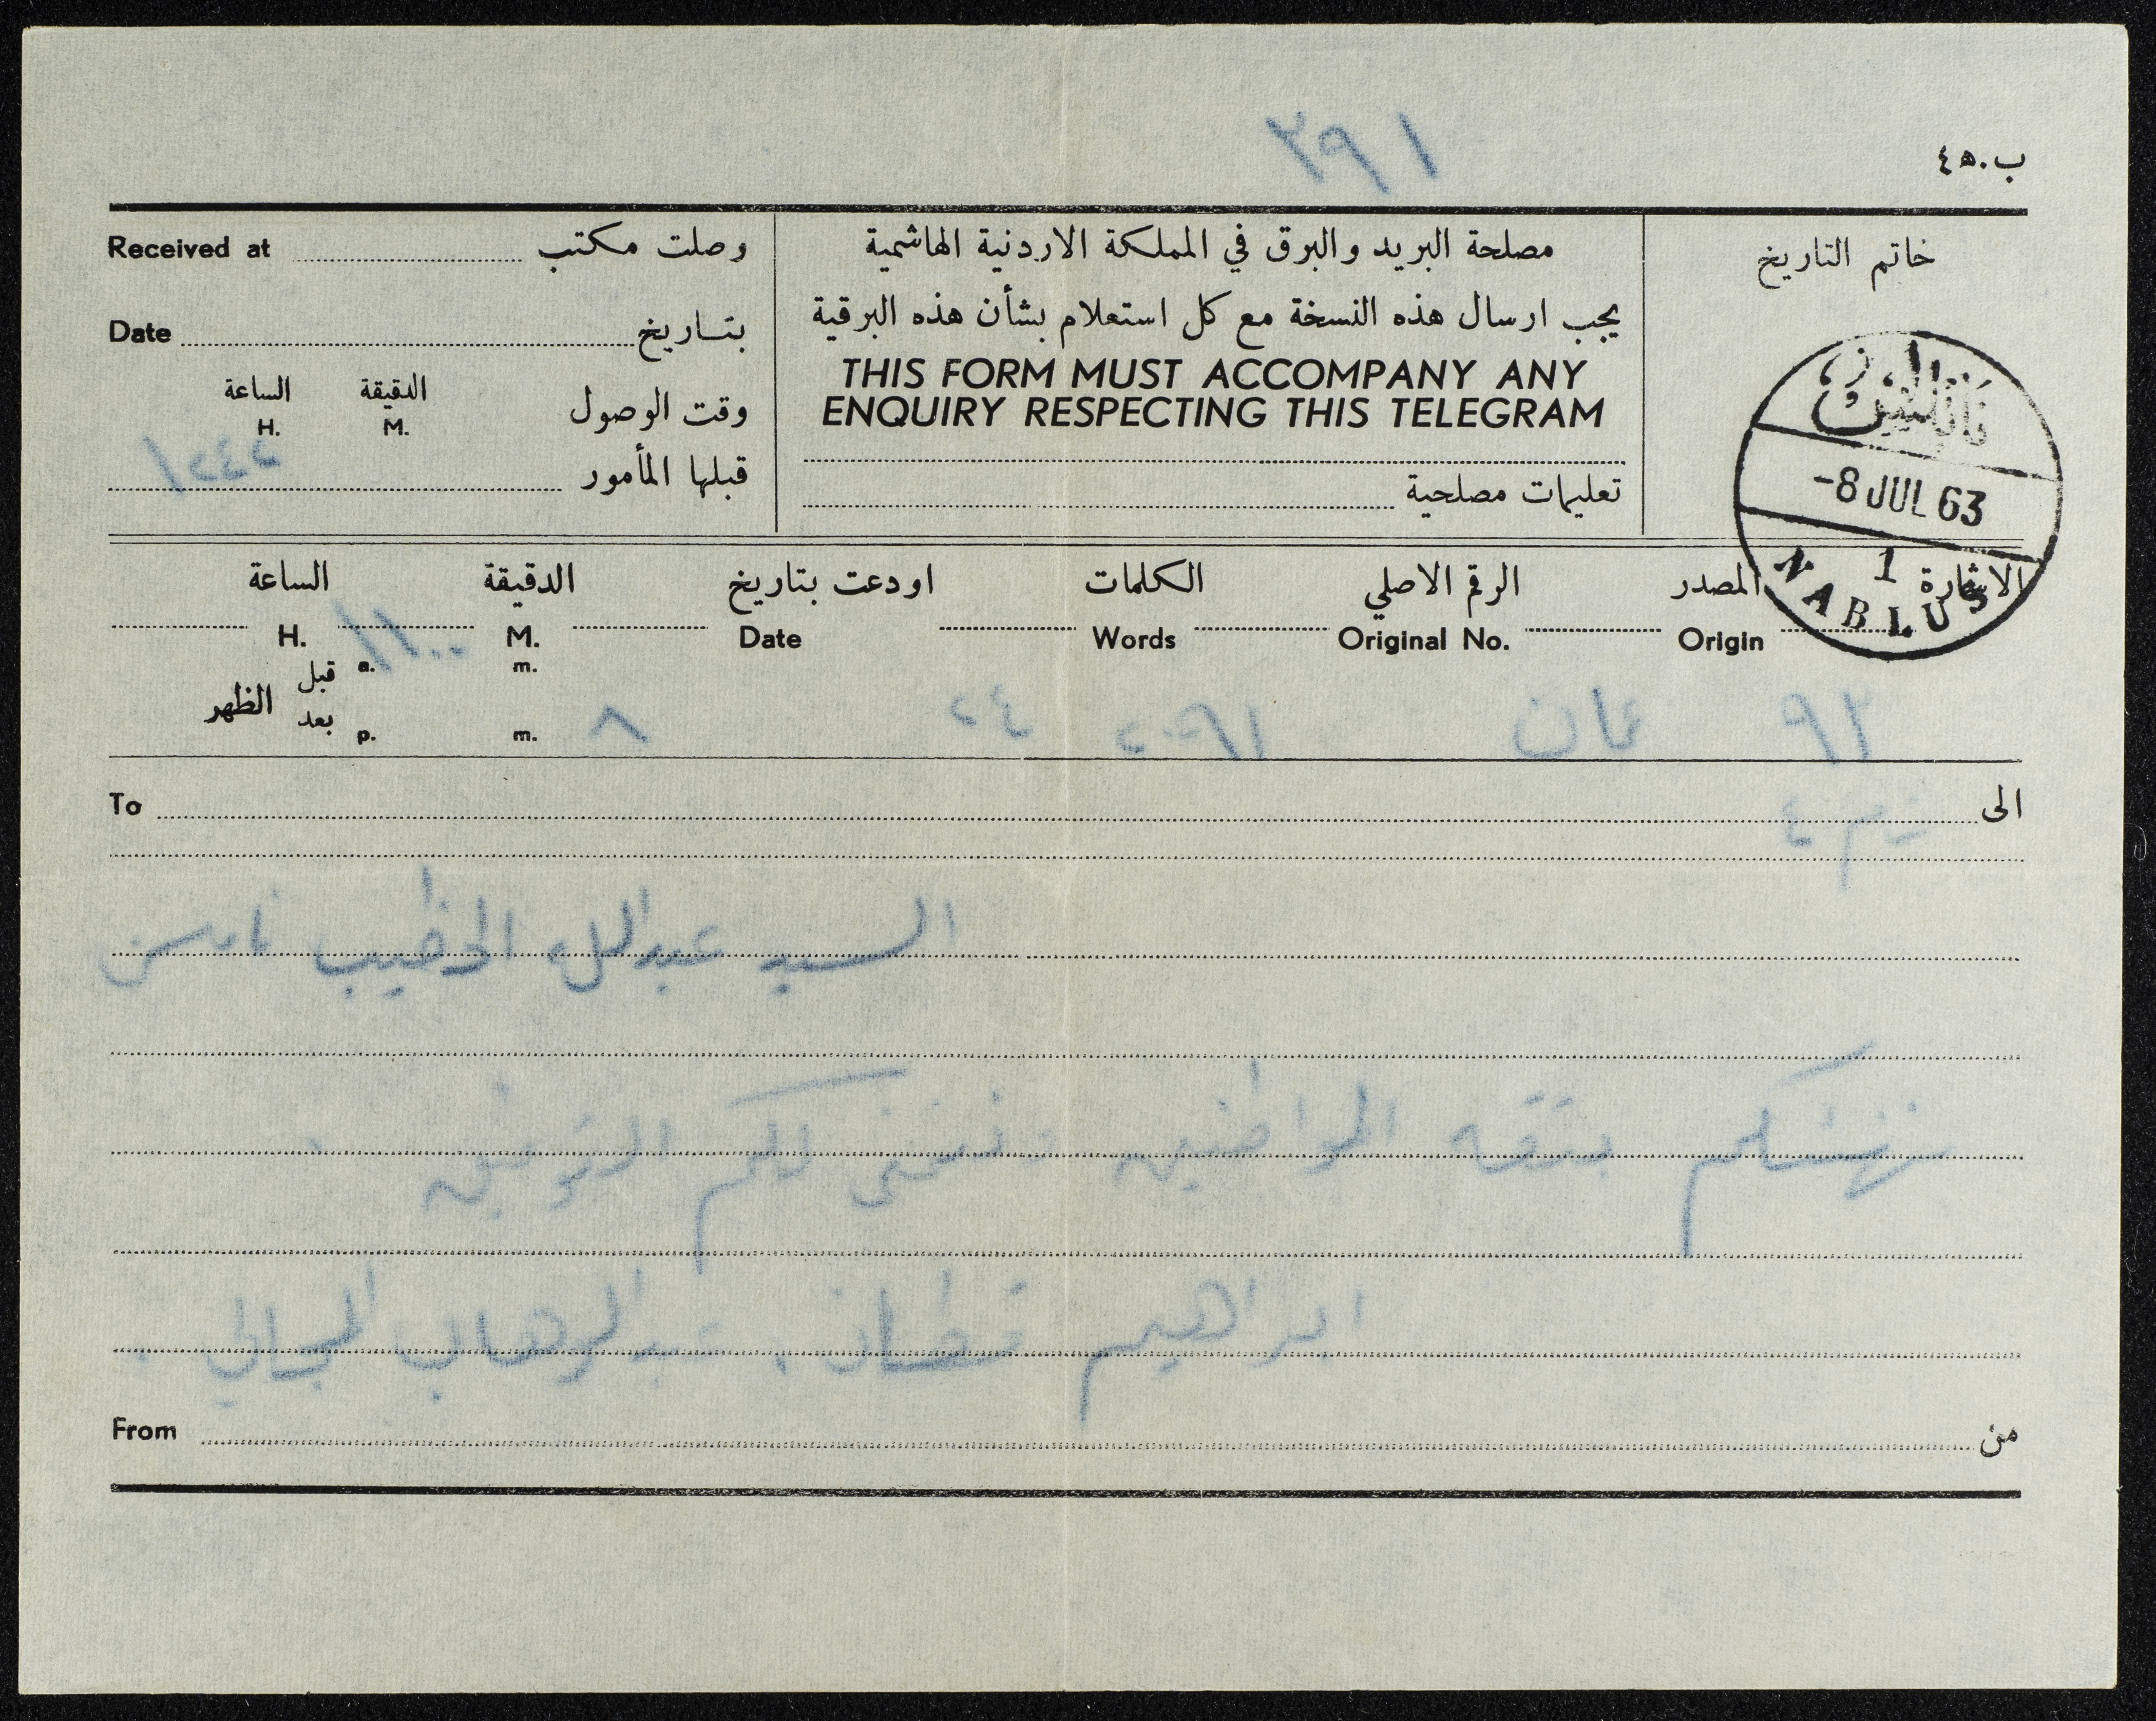 ١٩٢
ب.٥٤
خاتم التاريخ
مصلحة البريد والبرق في المملكة الاردنية الهاشمية
يجب ارسال هذه النسخة مع كل استعلام بشأن هذه البرقية
THIS FORM MUST ACCOMPANY ANY
ENQUIRY RESPECTING THIS TELEGRAM
تعليمات مصلحية
وصلت مكتب Received at
بتاريخ Date
وقت الوصول الدقيقة M. الساعة H.
قبلها المأمور
-8 JUL 63
1
NABLUS
الاشارة المصدر الرقم الاصلي الكلمات اودعت بتاريخ الدقيقة الساعة
Origin Original No. Words Date M. H.
١١٠٠
قبل a. m.
الظهر
بعد p. m.
عمان ٨
الى To
السيد عبدالله الخطيب نابلس
نهنئكم بثقة المواطنين ونتمنى لكم التوفيق
ابراهيم قطان . عبدالوهاب المجالي .
من From